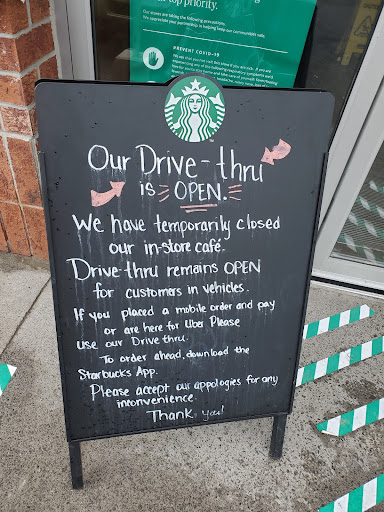 top priority.
Our stores are taking the following precautions.
We appreciate your partnership in helping keep our communities safe.
PREVENT COVID-19
Our Drive-thru
is OPEN.
We have temporarily closed
our in-store café.
Drive-thru remains OPEN
for customers in vehicles.
If you placed a mobile order and pay
or are here for Uber Please
use our Drive thru.
To order ahead, download the
Starbucks App.
Please accept our appologies for any
inconvenience.
Thank you!